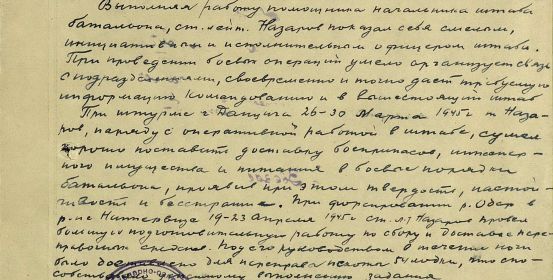 Выполняя работу помощника начальника штаба
батальона, ст. лейт. Назаров показал себя смелым,
инициативным и исполнительным офицером штаба.
При проведении боевых операций умело организует связь
с подразделениями, своевременно и точно дает требуемую
информацию командованию и в вышестоящий штаб
При штурме г. Данцига 26-30 марта 1945 г. т. Наза-
ров, наряду с оперативной работой в штабе, сумел
хорошо поставить доставку боеприпасов, инженер-
ного имущества и питания в боевые порядки
батальона, проявив при этом твердость, настой-
чивость и бесстрашие. При форсировании р. Одер в
р-не 19-23 апреля 1945 г. ст. л-т Назаров провел
большую подготовительную работу по сбору и доставке пере-
правочных средств. Под его руководством в течение ночи
было доставлено для переправы пехоты лодки, что спо-
собствовало выполнению задания